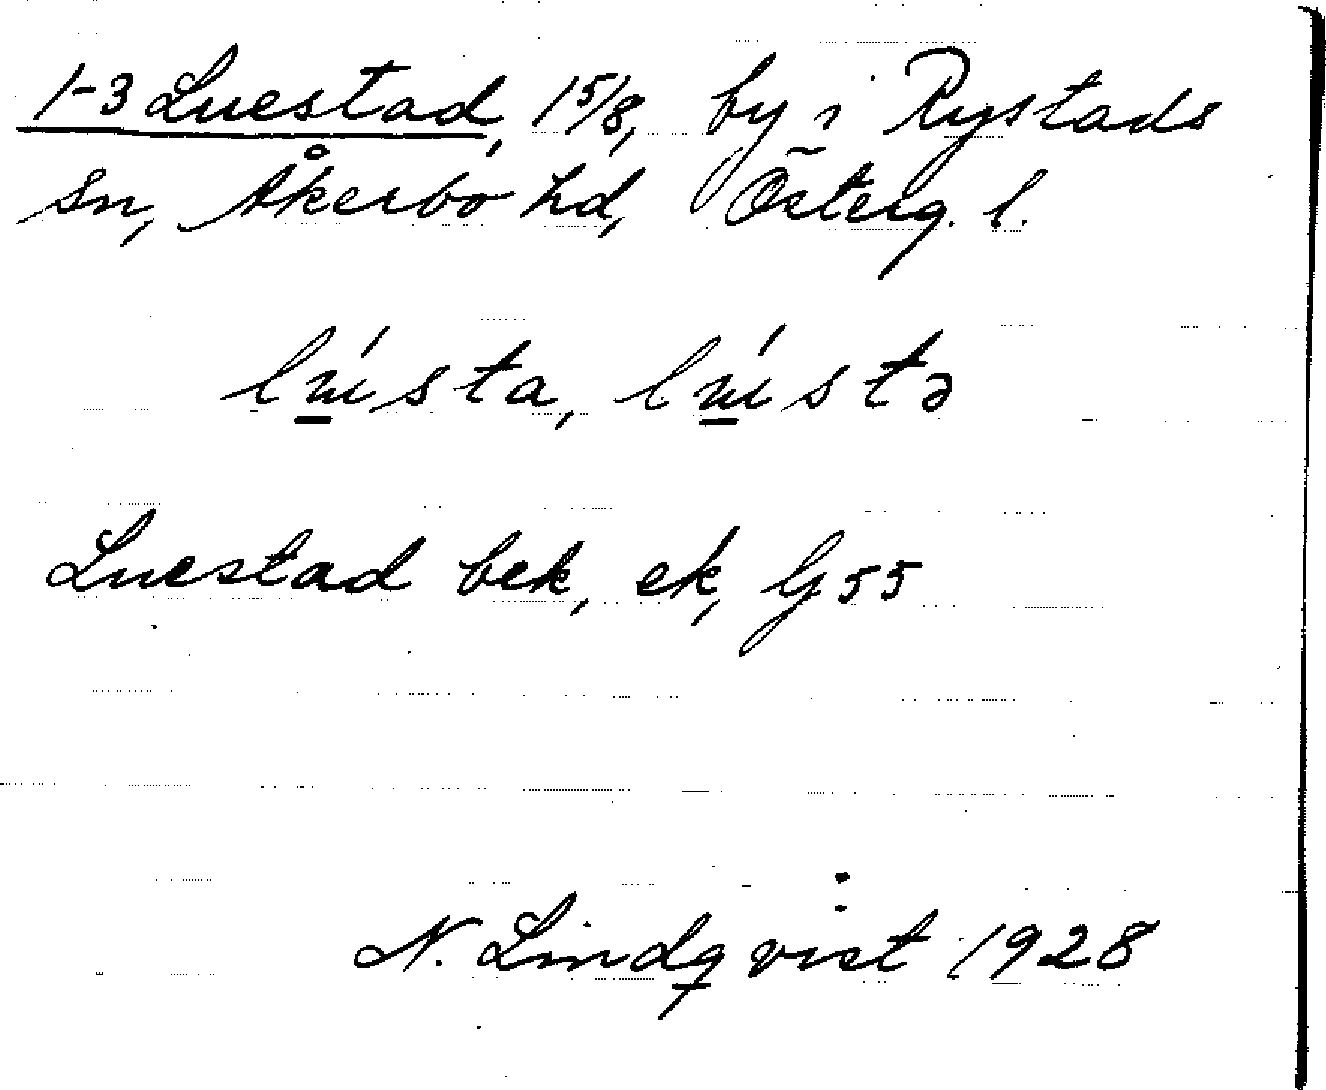 1-3 Luestad, 15/8, by i Rystads
sn, Åkerbo hd, Österg. l.
Luestad bek, ek, G 55
N. Lindqvist 1928